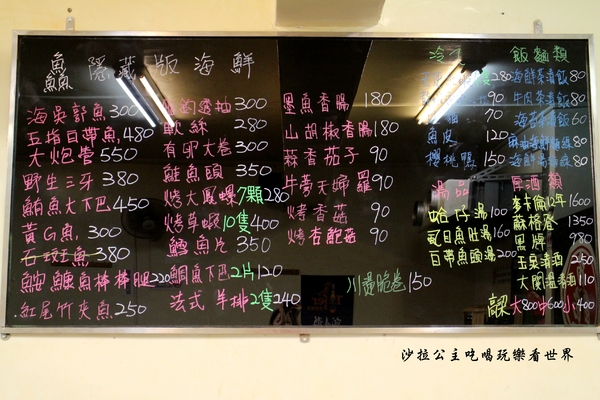 鱻 隱藏版海鮮
海吴郭魚300
五指白帶魚480
大炮管550
野生三牙380
鮪魚大下巴450
黃G魚300
石斑魚380
鮟鱇魚棒棒腿220
紅尾竹夾魚250
透抽300
軟絲280
有卵大卷300
鮭魚頭350
烤大鳳螺7顆280
烤草蝦10隻400
鱈魚片350
鯛魚下巴2片120
法式羊排2隻240
墨魚香腸180
山胡椒香腸180
蒜香茄子90
牛蒡天婦羅90
烤香菇90
烤杏鮑菇90
川燙脆卷150
280
90
70
魚皮120
櫻桃鴨150
湯品
蛤仔湯100
虱目魚肚湯160
白帶魚頭湯200
飯麵類
海鮮茶漬飯80
牛肉茶漬飯80
海苔茶漬飯60
80
80
厚酒類
麥卡倫12年1600
蘇格登1350
黑牌980
玉泉清酒250
大關溫清酒110
高粱大800中600小400
沙拉公主吃喝玩樂看世界